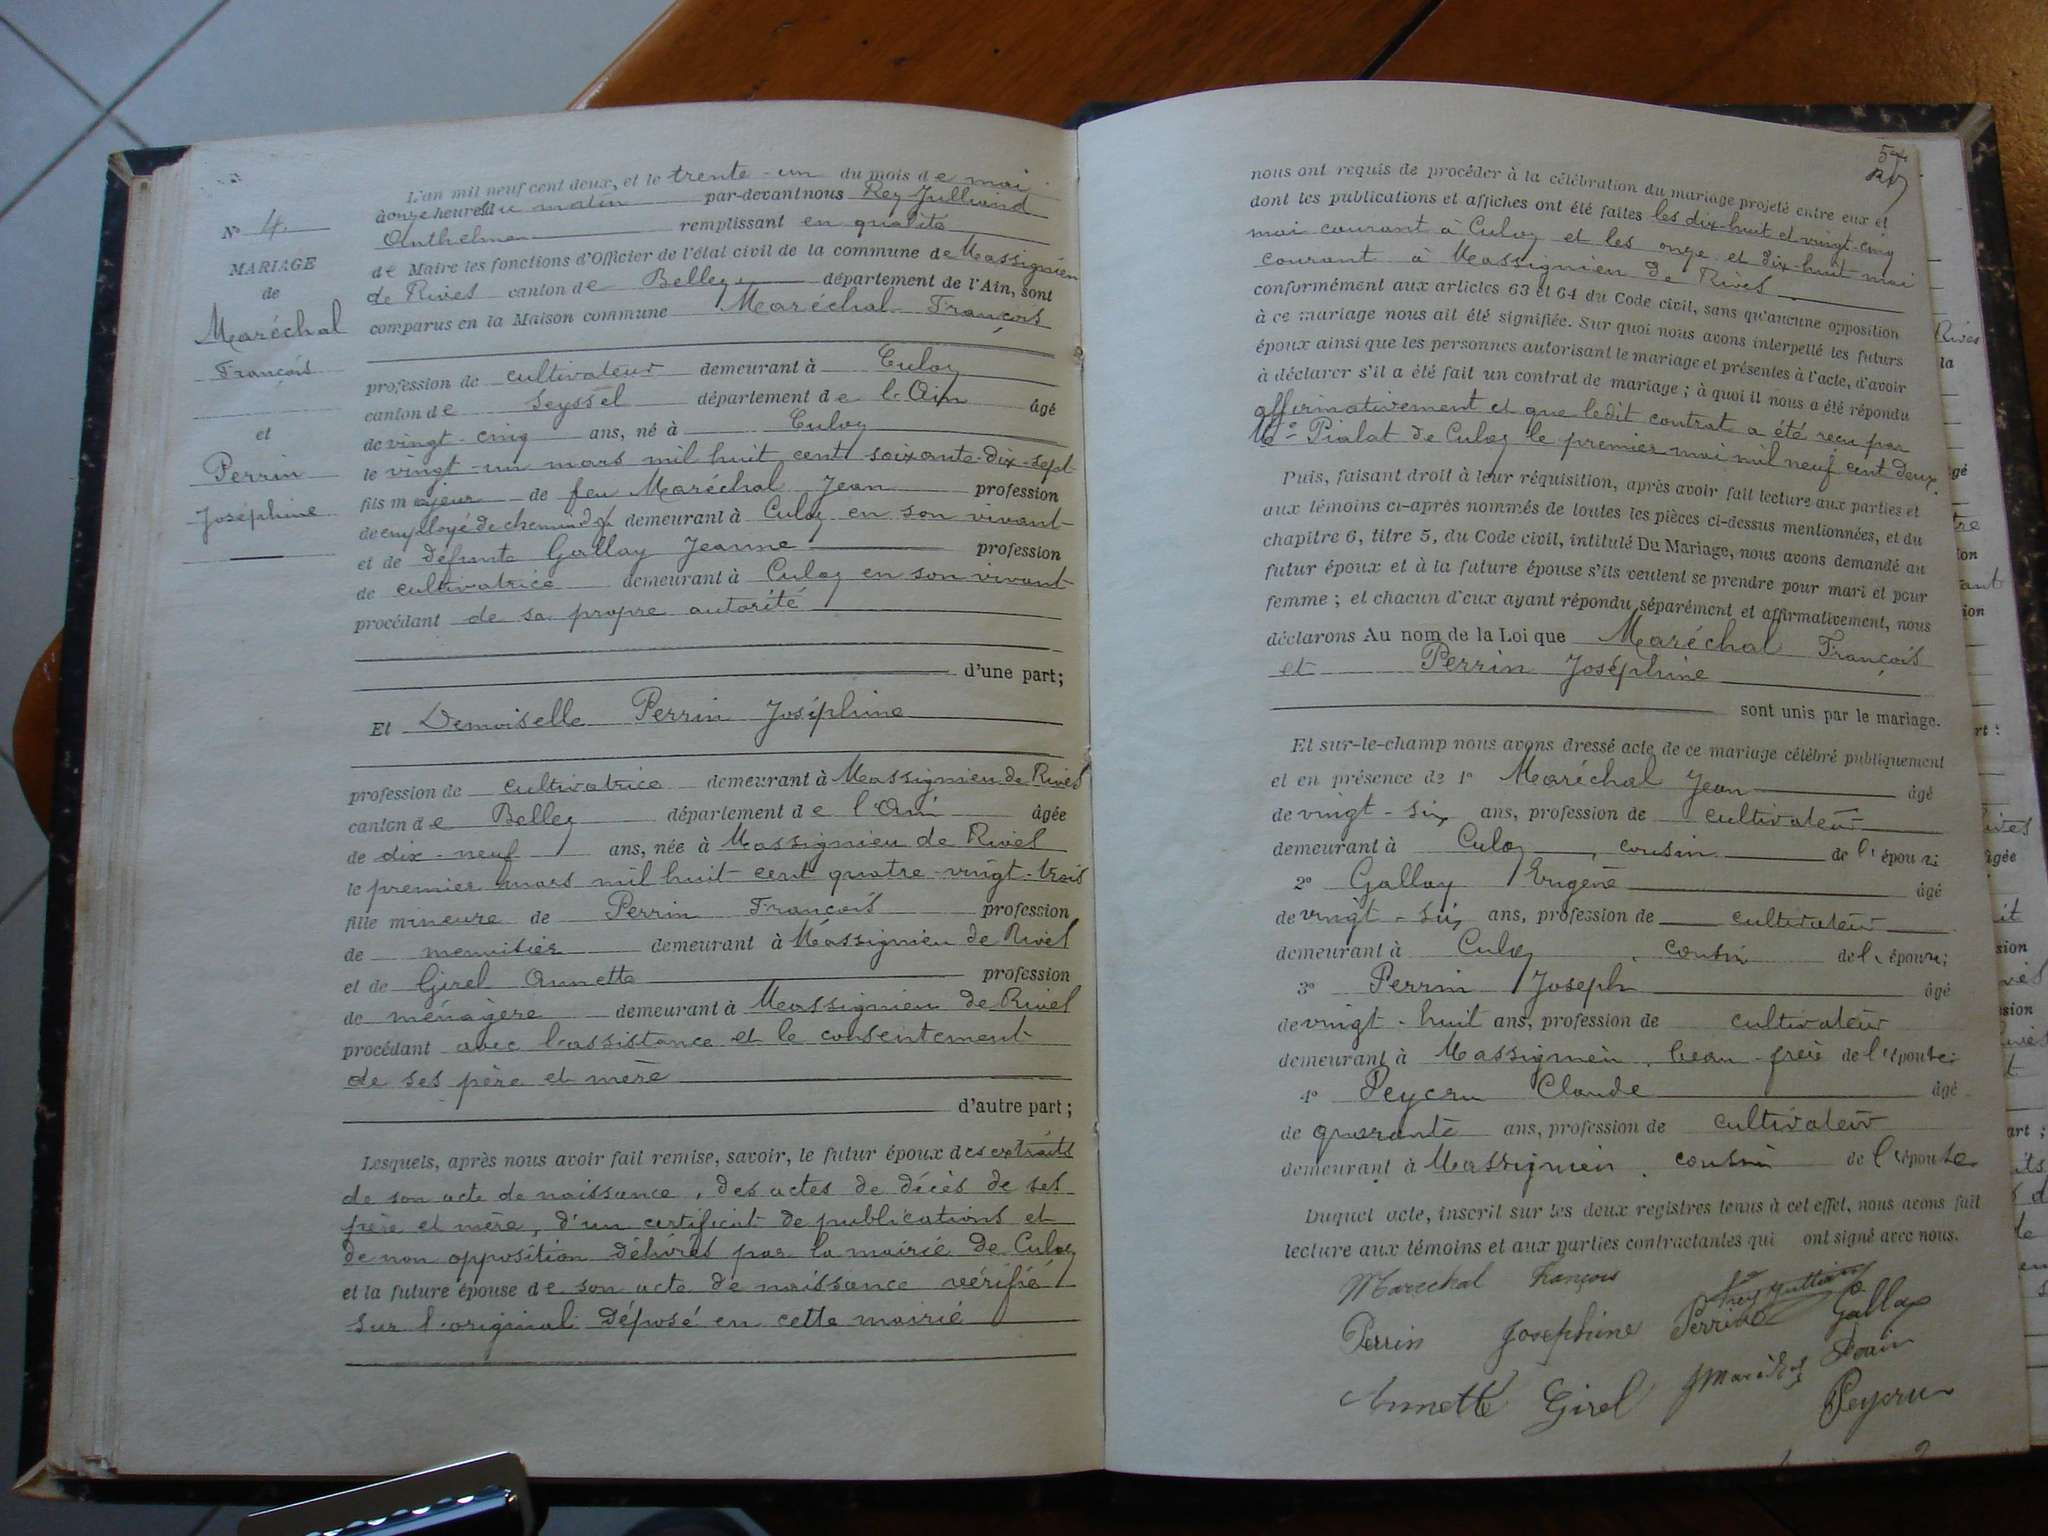 N° 4.
MARIAGE
de
Maréchal
François
et
Perrin
Joséphine
L'an mil neuf cent deux, et le trente-un du mois de mai
à onze heures du matin par-devant nous Rey Julliand
Anthelme remplissant en qualité
de Maire les fonctions d'Officier de l'état civil de la commune de Massignieu
de Rives canton de Belley département de l'Ain, sont
comparus en la Maison commune Maréchal François
profession de cultivateur demeurant à Culoz
canton de Seyssel département de l'Ain âgé
de vingt-cinq ans, né à Culoz
le vingt-un mars mil huit cent soixante-dix-sept
fils majeur de feu Maréchal Jean profession
de employé de chemin de f demeurant à Culoz en son vivant
et de défunte Gallay Jeanne profession
de cultivatrice demeurant à Culoz en son vivant
procédant de sa propre autorité
d'une part;
Et Demoiselle Perrin Joséphine
profession de cultivatrice demeurant à Massignieu de Rives
canton de Belley département de l'Ain âgée
de dix-neuf ans, née à Massignieu de Rives
le premier mars mil huit cent quatre-vingt-trois
fille mineure de Perrin François profession
de menuisier demeurant à Massignieu de Rives
et de Girel Annette profession
de ménagère demeurant à Massignieu de Rives
procédant avec l'assistance et le consentement
de ses père et mère
d'autre part;
Lesquels, après nous avoir fait remise, savoir, le futur époux des extraits
de son acte de naissance, des actes de décès de ses
père et mère, d'un certificat de publications et
de non opposition délivrés par la mairie de Culoz
et la future épouse de son acte de naissance vérifié
sur l'original déposé en cette mairie
nous ont requis de procéder à la célébration du mariage projeté entre eux et
dont les publications et affiches ont été faites les dix-huit et vingt-cinq
mai courant à Culoz et les onze et dix-huit mai
courant à Massignieu de Rives
conformément aux articles 63 et 64 du Code civil, sans qu'aucune opposition
à ce mariage nous ait été signifiée. Sur quoi nous avons interpellé les futurs
époux ainsi que les personnes autorisant le mariage et présentes à l'acte, d'avoir
à déclarer s'il a été fait un contrat de mariage; à quoi il nous a été répondu
affirmativement et que ledit contrat a été reçu par
Me Pialat de Culoz le premier mai mil neuf cent deux.
Puis, faisant droit à leur réquisition, après avoir fait lecture aux parties et
aux témoins ci-après nommés de toutes les pièces ci-dessus mentionnées, et du
chapitre 6, titre 5, du Code civil, intitulé Du Mariage, nous avons demandé au
futur époux et à la future épouse s'ils veulent se prendre pour mari et pour
femme; et chacun d'eux ayant répondu séparément et affirmativement, nous
déclarons Au nom de la Loi que Maréchal François
et Perrin Joséphine
sont unis par le mariage.
Et sur-le-champ nous avons dressé acte de ce mariage célébré publiquement
et en présence de 1° Maréchal Jean âgé
de vingt-six ans, profession de cultivateur
demeurant à Culoz, cousin de l'époux
2° Gallay Eugène âgé
de vingt-six ans, profession de cultivateur
demeurant à Culoz, cousin de l'époux;
3° Perrin Joseph âgé
de vingt-huit ans, profession de cultivateur
demeurant à Massignieu, beau-frère de l'épouse;
4° Peycru Claude âgé
de quarante ans, profession de cultivateur
demeurant à Massignieu, cousin de l'épouse
Duquel acte, inscrit sur les deux registres tenus à cet effet, nous avons fait
lecture aux témoins et aux parties contractantes qui ont signé avec nous.
Maréchal François
Perrin Josephine Perrin Gallay
Annette Girel
Peycru